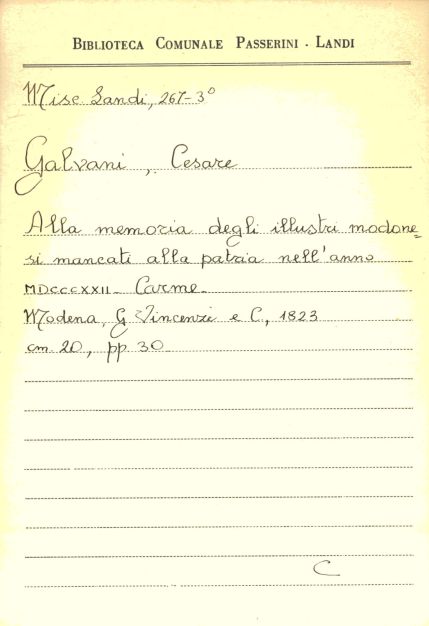 BIBLIOTECA COMUNALE PASSERINI - LANDI
Misc. Landi, 267-3°
Galvani, Cesare
Alla memoria degli illustri modone=
si mancati alla patria nell'anno
MDCCCXXII. Carme.
Modena, G. Vincenzi e C., 1823
cm. 20, pp. 30
C